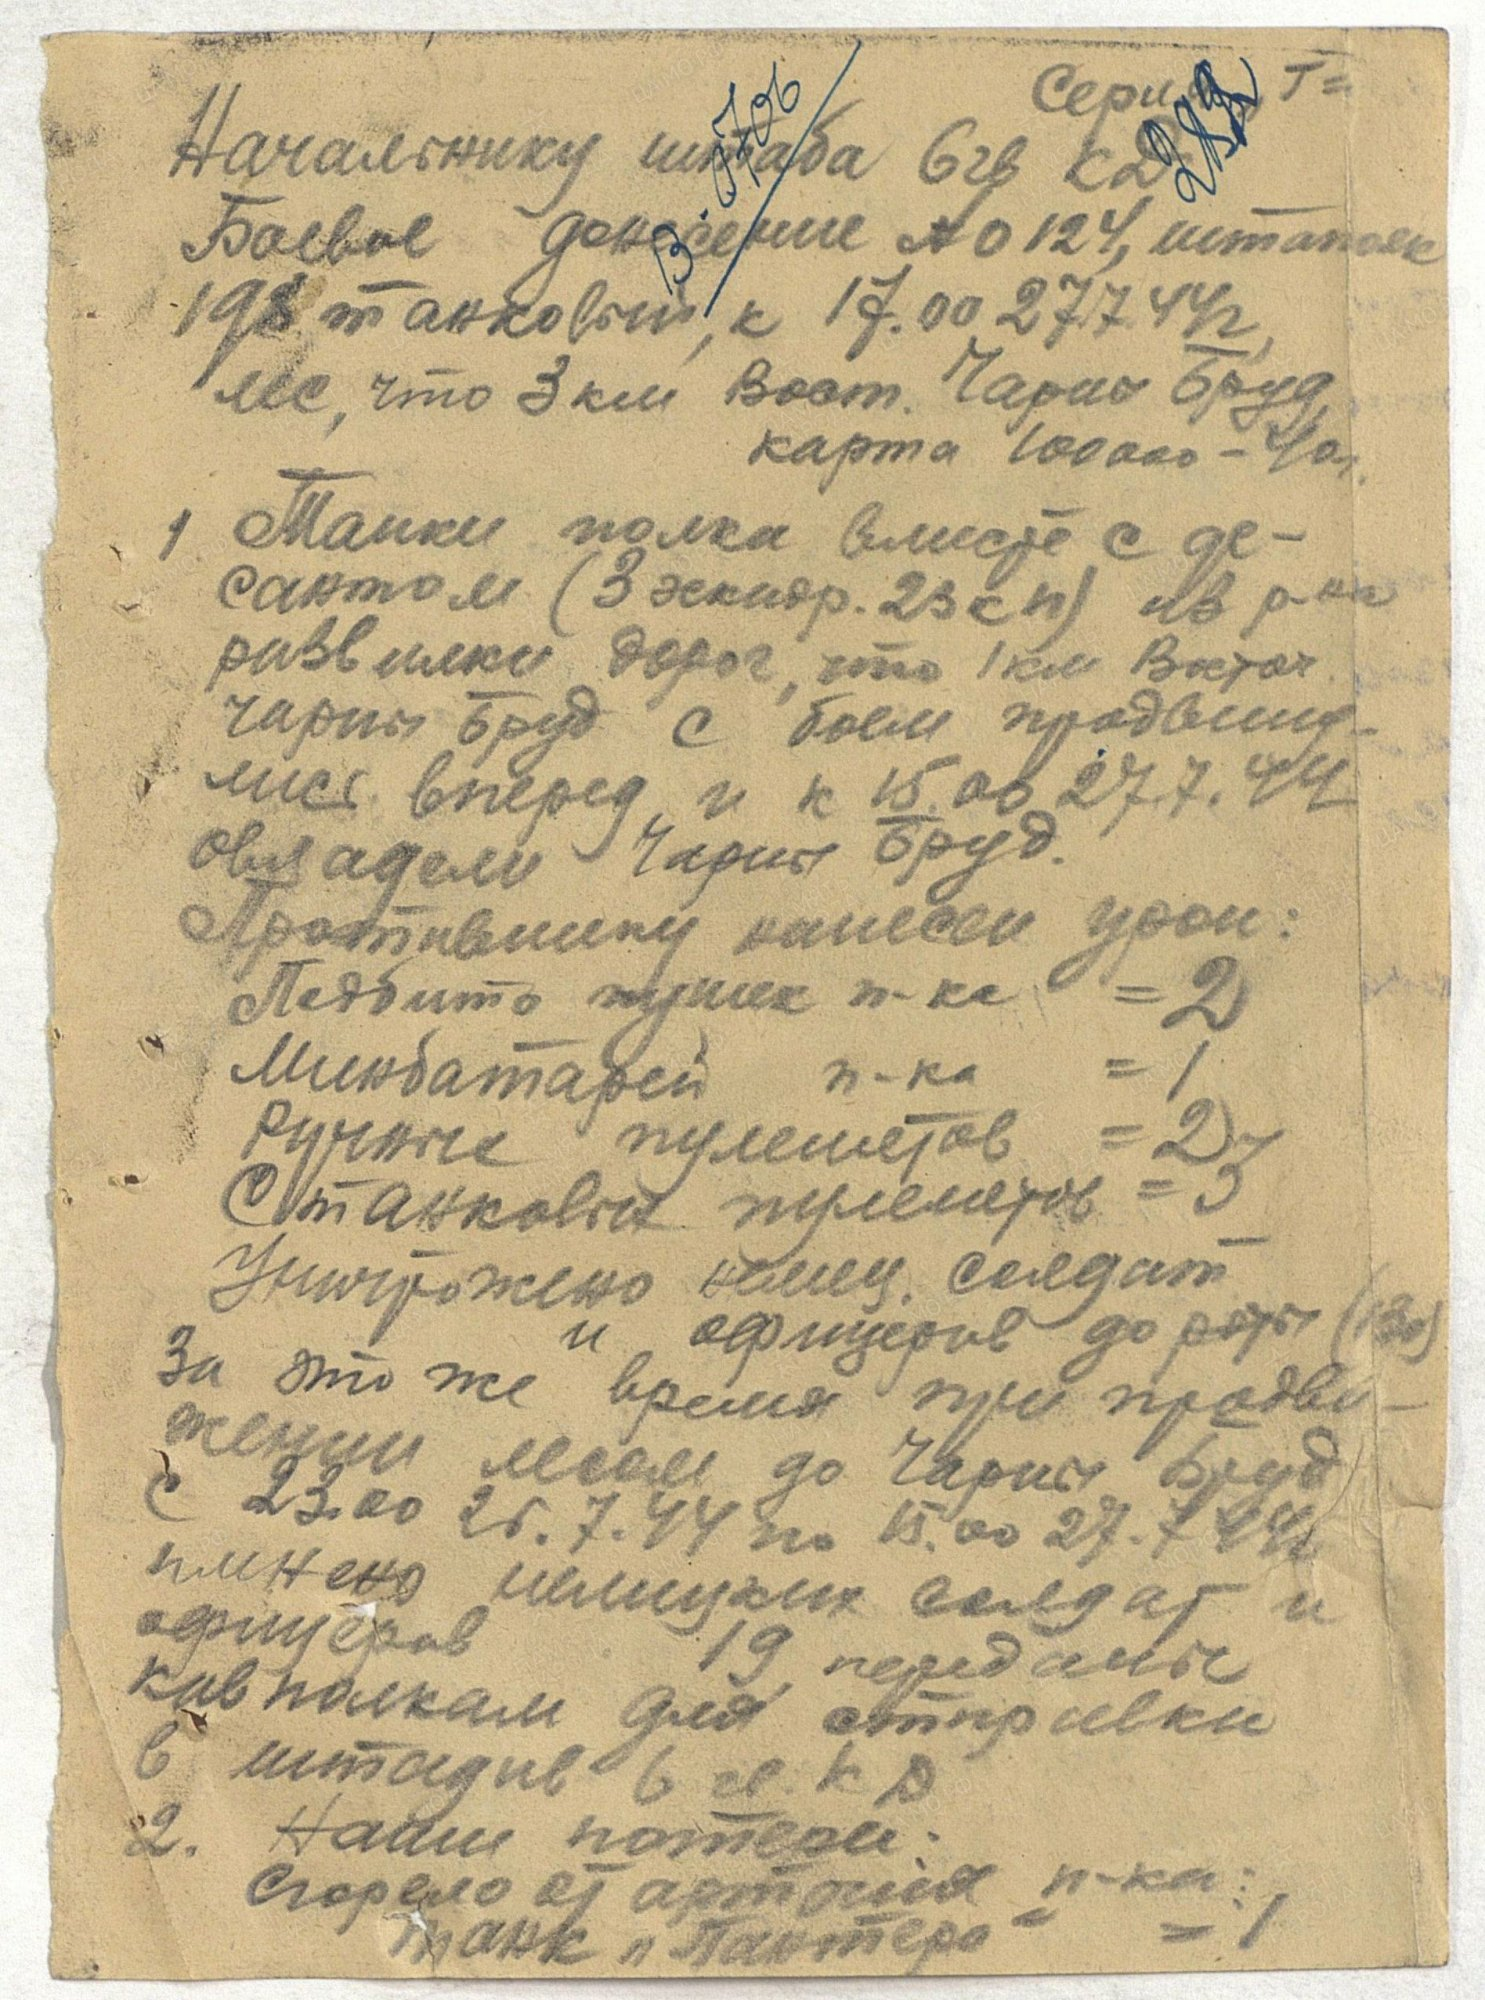 Серия Г=
Начальнику штаба 6 гв КД
Боевое донесение № 0124, штаполк
198 танковый, к 17.00 27.7.44 г,
лес, что 3 км Вост. Чарны Бруд,
карта 100000 – 40г.
1 Танки полка вместе с де-
сантом (3 эскадр. 23 кп) из р-на
развилки дорог, что 1 км Восточ.
Чарны Бруд с боем продвину-
лись вперед и к 15.00 27.7.44
овладели Чарны Бруд.
Противнику нанесен урон:
Подбито пушек п-ка = 2
Минбатарей п-ка = 1
Ручные пулеметов = 2
Станковых пулеметов = 3
Уничтожено немец. солдат
и офицеров до роты (130)
За это же время при продви-
жении лесом до Чарны Бруд
с 23.00 25.7.44 по 15.00 27.7.44
пленено немецких солдат и
офицеров 19, переданы
кавполкам для отправки
в штадив 6 гв. КД
2. Наши потери:
Сгорело от артогня п-ка:
танк „Пантера“ = 1